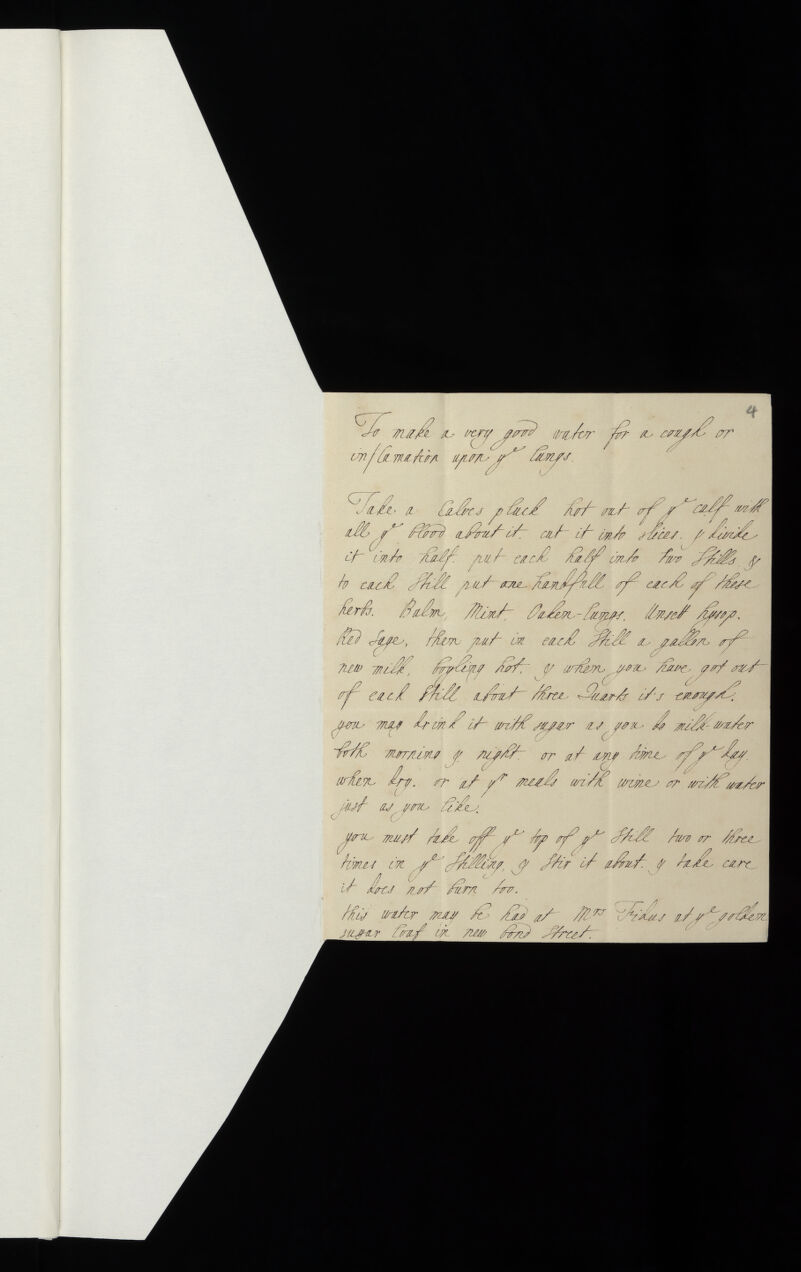 4
To make a very good water for a cough or
inflamation upon yᵉ lungs.
Take a Calves pluck hot out of yᵉ calf with
all yᵉ blood about it. cut it into slices. & divide
it into half. put each half into two Stills &
to each Still put one handfull of each of these
herbs. Balm, Mint, Oaken-lungs, Unsett hysop.
Red Sage, then put in each Still a gallon of
new milk, boyling hot. & when you have got out
of each Still about three Quarts it's enough.
you may drink it with sugar as you do milk-water
both morning & night. or at any time of yᵉ day
when dry. or at yʳ meals with wine or with water
just as you like.
you must take off yᵉ top of yᵉ Still two or three
times in yᵉ Stilling, & Stir it about. & take care
it does not burn too.
this water may be had at Mʳˢ Fidus at yᵉ golden
sugar loaf in new bond Street.